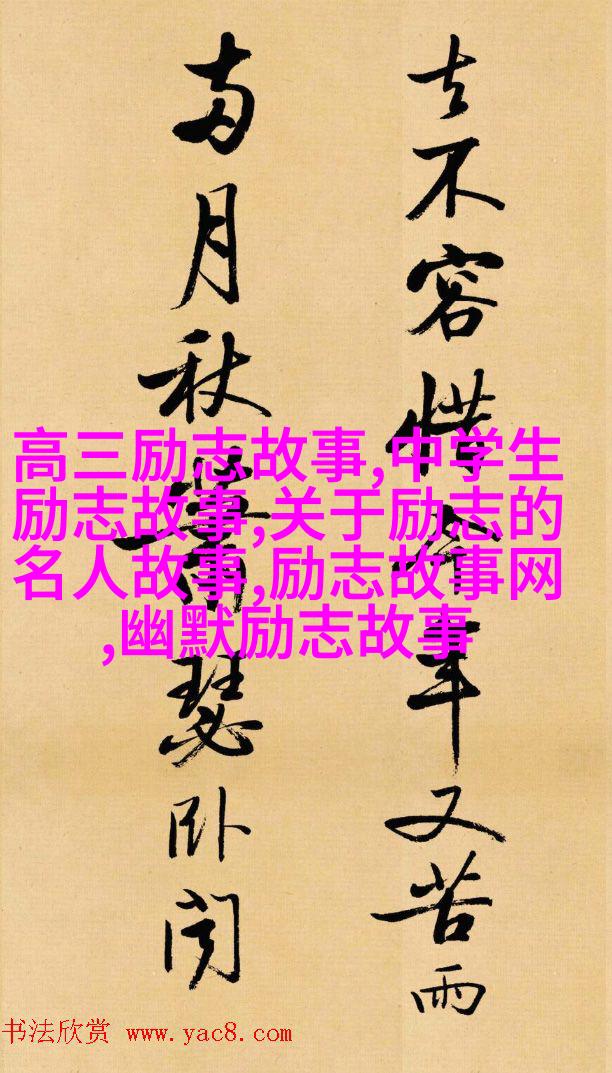 去不容惜今年又苦雨
两月秋蕭瑟卧闻
高三励志故事,中学生
励志故事,关于励志的
名人故事,励志故事网
,幽默励志故事
书法欣赏 www.yac8.com